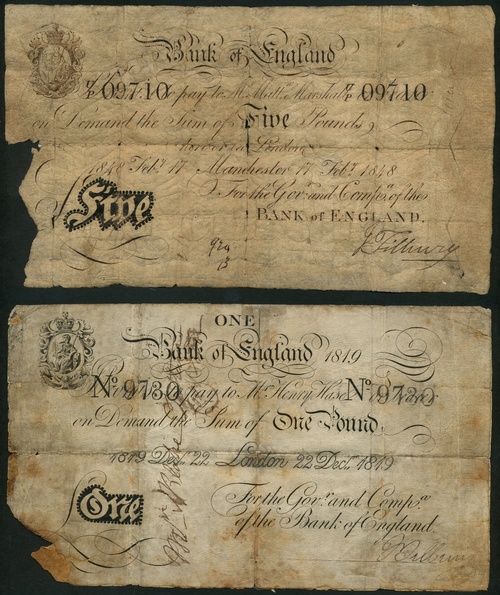 Bank of England
09710 pay to Mr. Matt. Marshall 09710
on Demand the Sum of Five Pounds
here or in London
1848 Feby. 17 Manchester 17 Feby. 1848
For the Govr. and Compa. of the
BANK of ENGLAND.
Five
ONE
Bank of England 1819
No. 9730 pay to Mr. Henry Hase No.
on Demand the Sum of One Pound
1819 Decr. 22 London 22 Decr. 1819
For the Govr. and Compa.
of the Bank of England.
One